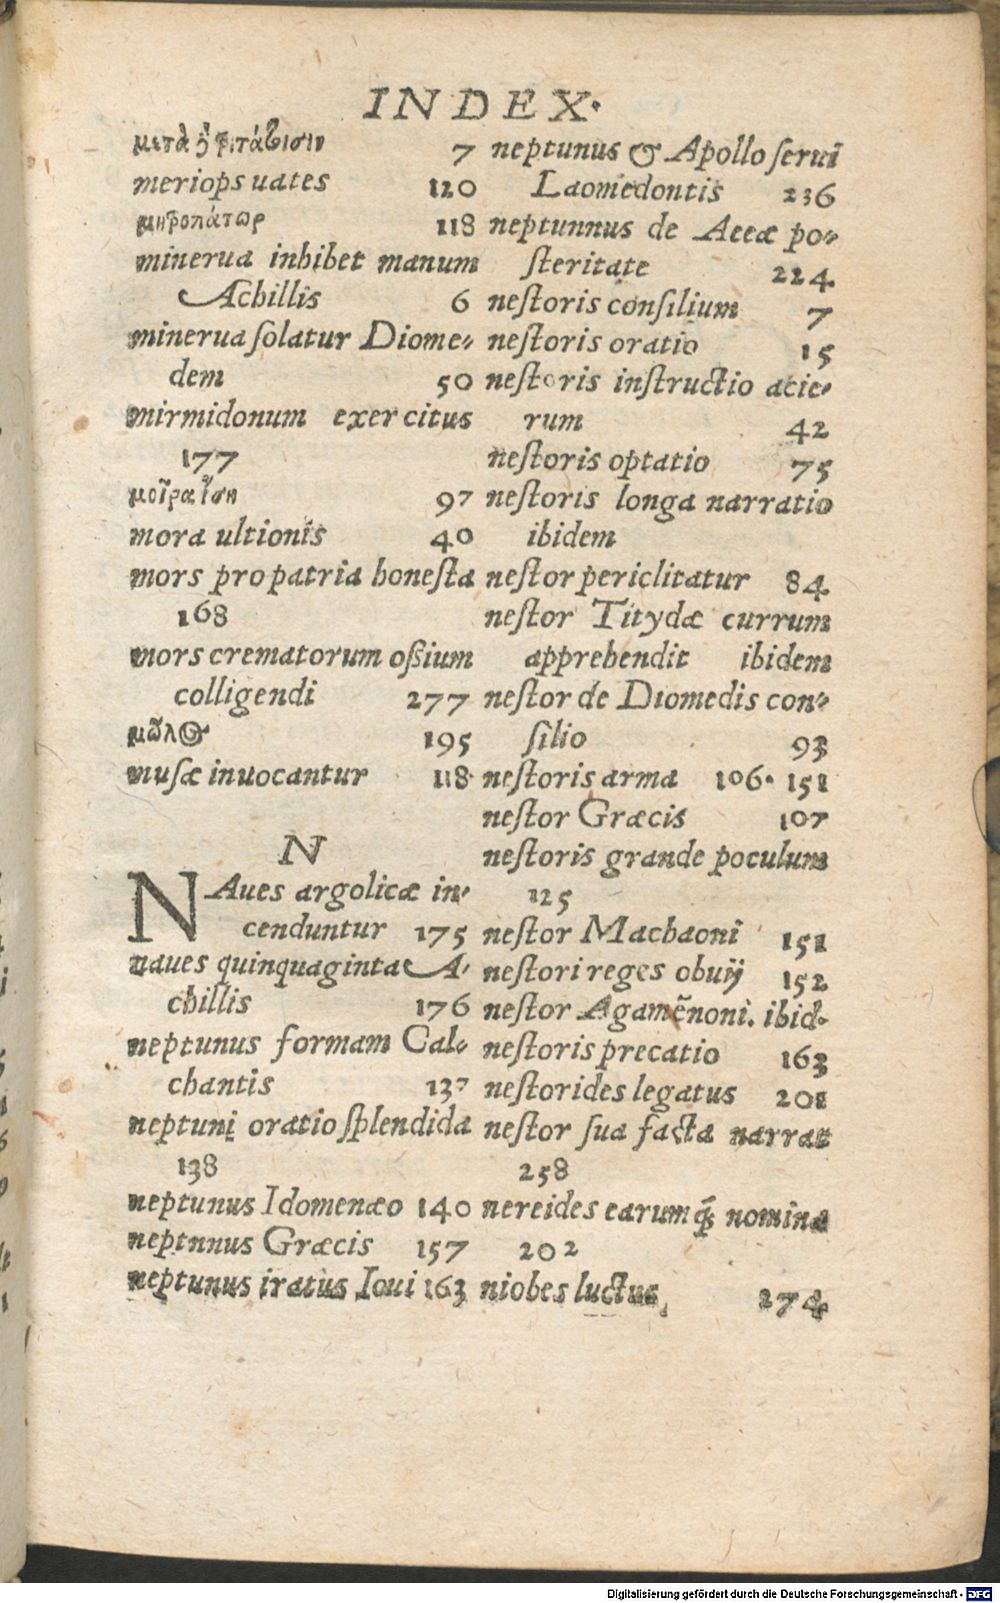 INDEX.
μετὰ 7
meriops uates 120
μητροπάτωρ 118
minerua inhibet manum
Achillis 6
minerua ſolatur Diome-
dem 50
mirmidonum exercitus
177
97
mora ultionis 40
mors pro patria honeſta
168
mors crematorum oßium
colligendi 277
μῶλος 195
muſæ inuocantur 118
N
NAues argolicæ in-
cenduntur 175
naues quinquaginta A-
chillis 176
neptunus formam Cal-
chantis 137
neptuni oratio ſplendida
138
neptunus Idomenæo 140
neptnnus Græcis 157
neptunus iratus Ioui 163
neptunus & Apollo ſeruī
Laomedontis 236
neptunnus de Aeeæ po-
ſteritate 224
neſtoris conſilium 7
neſtoris oratio 15
neſtoris inſtructio acie-
rum 42
neſtoris optatio 75
neſtoris longa narratio
ibidem
neſtor periclitatur 84
neſtor Titydæ currum
apprehendit ibidem
neſtor de Diomedis con-
ſilio 93
neſtoris arma 106. 151
neſtor Græcis 107
neſtoris grande poculum
125
neſtor Machaoni 151
neſtori reges obuij 152
neſtor Agamēnoni. ibid.
neſtoris precatio 163
neſtorides legatus 201
neſtor ſua facta narrat
258
nereides earumq́; nomina
202
niobes luctus 274
Digitalisierung gefördert durch die Deutsche Forschungsgemeinschaft - DFG